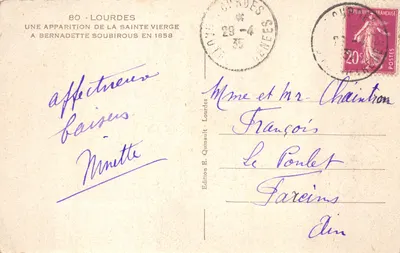 80 - LOURDES
UNE APPARITION DE LA SAINTE VIERGE
A BERNADETTE SOUBIROUS EN 1858
affectueux
baisers
Ninette
Edition E. Quinault - Lourdes
LOURDES
29-4
35
PYRENEES
20c
Mme et Mr Chaintron
François
Le Poulet
Fareins
Ain